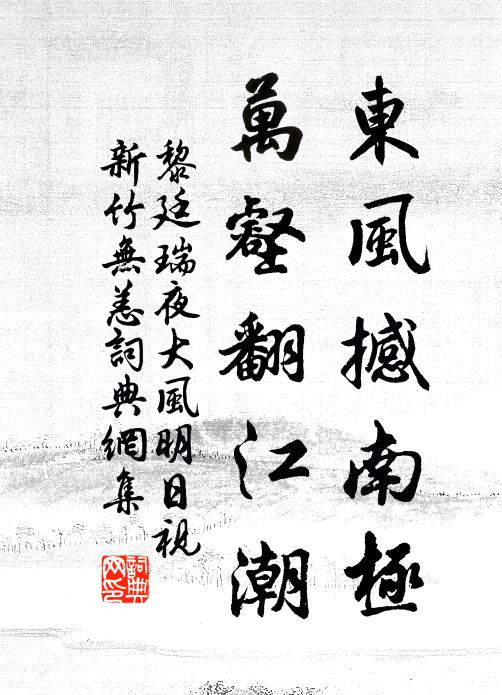 東風撼南極
萬壑翻江潮
黎廷瑞夜大風明日視
新竹無恙詞典網集
詞典
网印